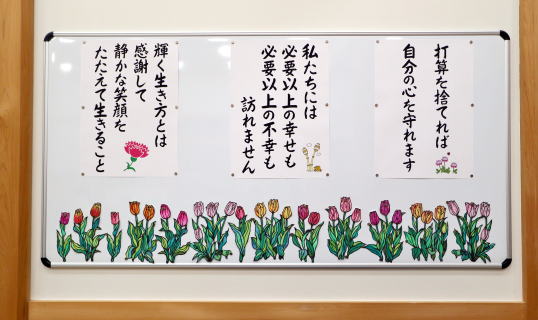 打算を捨てれば、
自分の心を守れます
私たちには
必要以上の幸せも
必要以上の不幸も
訪れません
輝く生き方とは
感謝して
静かな笑顔を
たたえて生きること